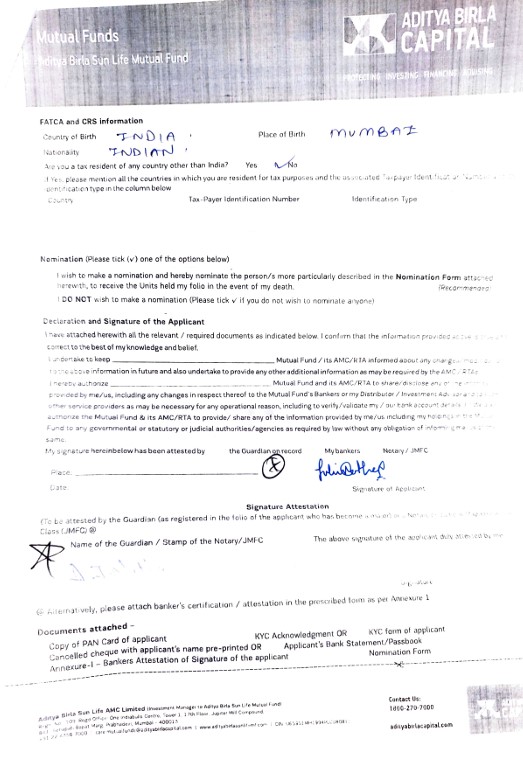 Mutual Funds
Aditya Birla Sun Life Mutual Fund
ADITYA BIRLA
CAPITAL
PROTECTING INVESTING FINANCING ADVISING
FATCA and CRS information
Country of Birth INDIA Place of Birth MUMBAI
Nationality INDIAN
Are you a tax resident of any country other than India? Yes No
If Yes, please mention all the countries in which you are resident for tax purposes and the associated Taxpayer Identification Number
identification type in the column below
Country Tax-Payer Identification Number Identification Type
Nomination (Please tick (√) one of the options below)
I wish to make a nomination and hereby nominate the person/s more particularly described in the Nomination Form attached
herewith, to receive the Units held my folio in the event of my death. (Recommended)
I DO NOT wish to make a nomination (Please tick √ if you do not wish to nominate anyone)
Declaration and Signature of the Applicant
I have attached herewith all the relevant / required documents as indicated below. I confirm that the information provided
correct to the best of my knowledge and belief.
I undertake to keep Mutual Fund / its AMC/RTA informed about any changes
information in future and also undertake to provide any other additional information as may be required by the AMC/RTA
I hereby authorize Mutual Fund and its AMC/RTA to share/disclose any of
provided by me/us, including any changes in respect thereof to the Mutual Fund's Bankers or my Distributor / Investment
other service providers as may be necessary for any operational reason, including to verify/validate my / our bank account details
authorize the Mutual Fund & its AMC/RTA to provide/ share any of the information provided by me/us including my holdings in the
Fund to any governmental or statutory or judicial authorities/agencies as required by law without any obligation of informing me
same.
My signature hereinbelow has been attested by the Guardian on record My bankers Notary / JMFC
Place:
Date: Signature of Applicant
Signature Attestation
(To be attested by the Guardian (as registered in the folio of the applicant who has become a major) or
Class (JMFC) @
Name of the Guardian / Stamp of the Notary/JMFC The above signature of the applicant duly attested by me
Signature
@ Alternatively, please attach banker's certification / attestation in the prescribed form as per Annexure 1
Documents attached –
Copy of PAN Card of applicant KYC Acknowledgment OR KYC form of applicant
Cancelled cheque with applicant's name pre-printed OR Applicant's Bank Statement/Passbook
Annexure-I – Bankers Attestation of Signature of the applicant Nomination Form
Aditya Birla Sun Life AMC Limited (Investment Manager to Aditya Birla Sun Life Mutual Fund)
Contact Us:
1800-270-7000
adityabirlacapital.com